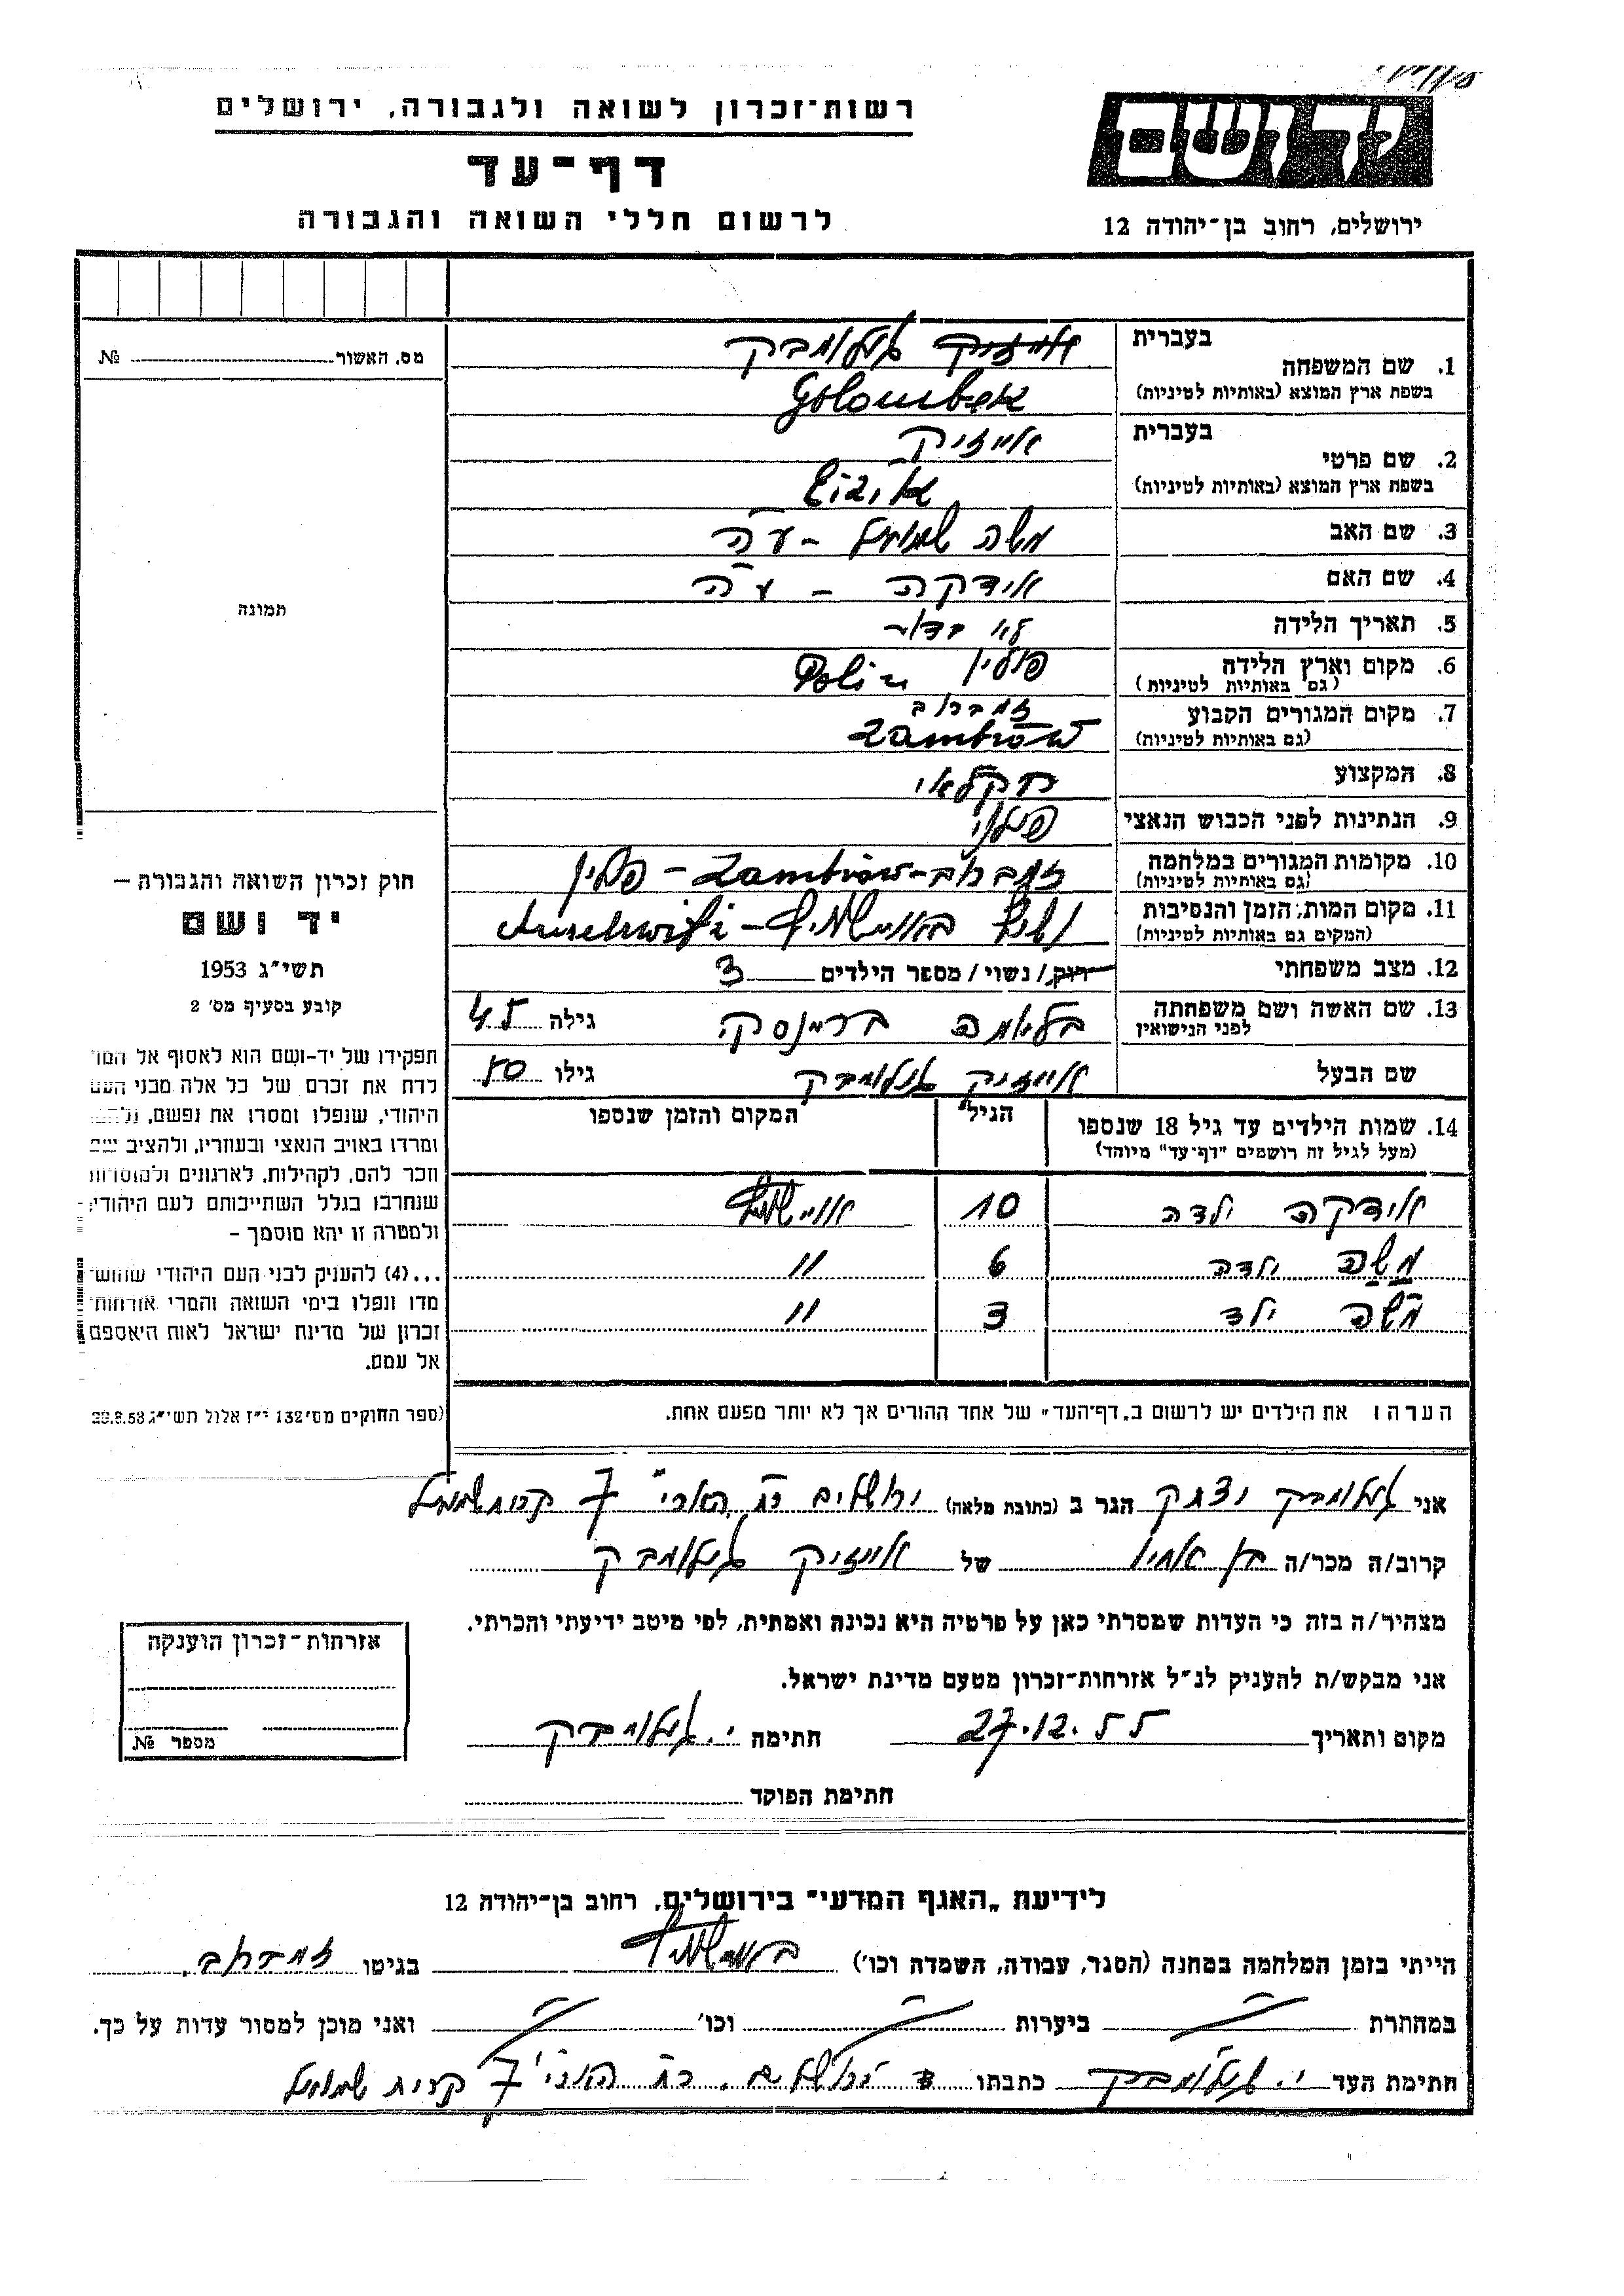 רשות־זכרון לשואה ולגבורה, ירושלים
דף־עד
לרשום חללי השואה והגבורה
ידושם
ירושלים, רחוב בן־יהודה 12
מס. האשור №
תמונה
חוק זכרון השואה והגבורה –
יד ושם
תשי״ג 1953
קובע בסעיף מס׳ 2
תפקידו של יד-ושם הוא לאסוף אל המו
לדת את זכרם של כל אלה מבני העם
היהודי, שנפלו ומסרו את נפשם,
ומרדו באויב הנאצי ובעוזריו, ולהציב שם
וזכר להם, לקהילות, לארגונים ולמוסדות
שנחרבו בגלל השתייכותם לעם היהודי;
ולמטרה זו יהא מוסמך –
...(4) להעניק לבני העם היהודי שהוש־
מדו ונפלו בימי השואה והמרי אזרחות־
זכרון של מדינת ישראל לאות היאספם
אל עמם.
(ספר החוקים מס׳ 132 י״ז אלול תשי״ג 28.8.53
בעברית
1. שם המשפחה אייזיק גולומבק
בשפת ארץ המוצא (באותיות לטיניות) Golombek
בעברית
2. שם פרטי אייזיק
בשפת ארץ המוצא (באותיות לטיניות)
3. שם האב משה שמואל – ע״ה
4. שם האם אידקה – ע״ה
5. תאריך הלידה לא
6. מקום וארץ הלידה פולין Polin
(גם באותיות לטיניות)
7. מקום המגורים הקבוע זמברוב
(גם באותיות לטיניות) Zambrów
8. המקצוע חקלאי
9. הנתינות לפני הכבוש הנאצי פולני
10. מקומות המגורים במלחמה זמברוב – Zambrów – פולין
(גם באותיות לטיניות)
11. מקום המות, הזמן והנסיבות
(המקום גם באותיות לטיניות)
12. מצב משפחתי רווק / נשוי / מספר הילדים 3
13. שם האשה ושם משפחתה
לפני הנישואין גילה 45
שם הבעל אייזיק גולומבק גילו 50
14. שמות הילדים עד גיל 18 שנספו הגיל המקום והזמן שנספו
(מעל לגיל זה רושמים "דף־עד" מיוחד)
אידקה ילדה 10
משה ילדה 6 "
משה ילד 3 "
הערה: את הילדים יש לרשום ב„דף־העד״ של אחד ההורים אך לא יותר מפעם אחת.
אני גולומבק יצחק הגר ב (כתובת מלאה) ירושלים רח הארי 7 קרית שמואל
קרוב/ה מכר/ה בן אחיו של אייזיק גולומבק
מצהיר/ה בזה כי העדות שמסרתי כאן על פרטיה היא נכונה ואמתית, לפי מיטב ידיעתי והכרתי.
אני מבקש/ת להעניק לנ״ל אזרחות־זכרון מטעם מדינת ישראל.
מקום ותאריך 27.12.55 חתימה י. גולומבק
חתימת הפוקד
אזרחות־זכרון הוענקה
מספר №
לידיעת „האגף המדעי״ בירושלים, רחוב בן־יהודה 12
הייתי בזמן המלחמה במחנה (הסגר, עבודה, השמדה וכו׳) בגיטו זמברוב.
במחתרת ביערות וכו׳ ואני מוכן למסור עדות על כך.
חתימת העד י. גולומבק כתבתו ירושלים. רח הארי 7 קרית שמואל